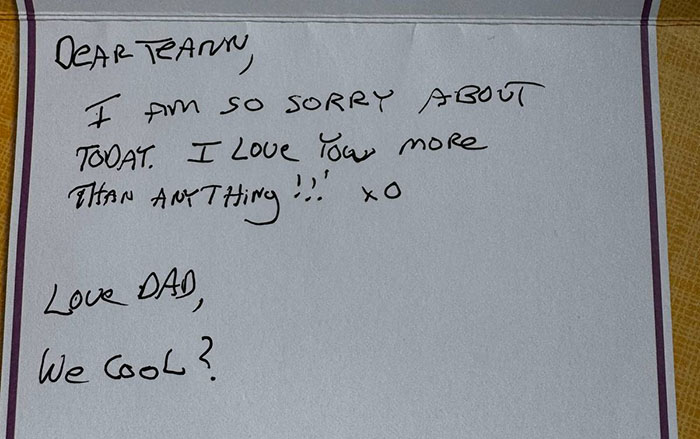 DEAR TEANN,
I AM SO SORRY ABOUT
TODAY. I LOVE YOU MORE
THAN ANYTHING!!! XO
LOVE DAD,
WE COOL?